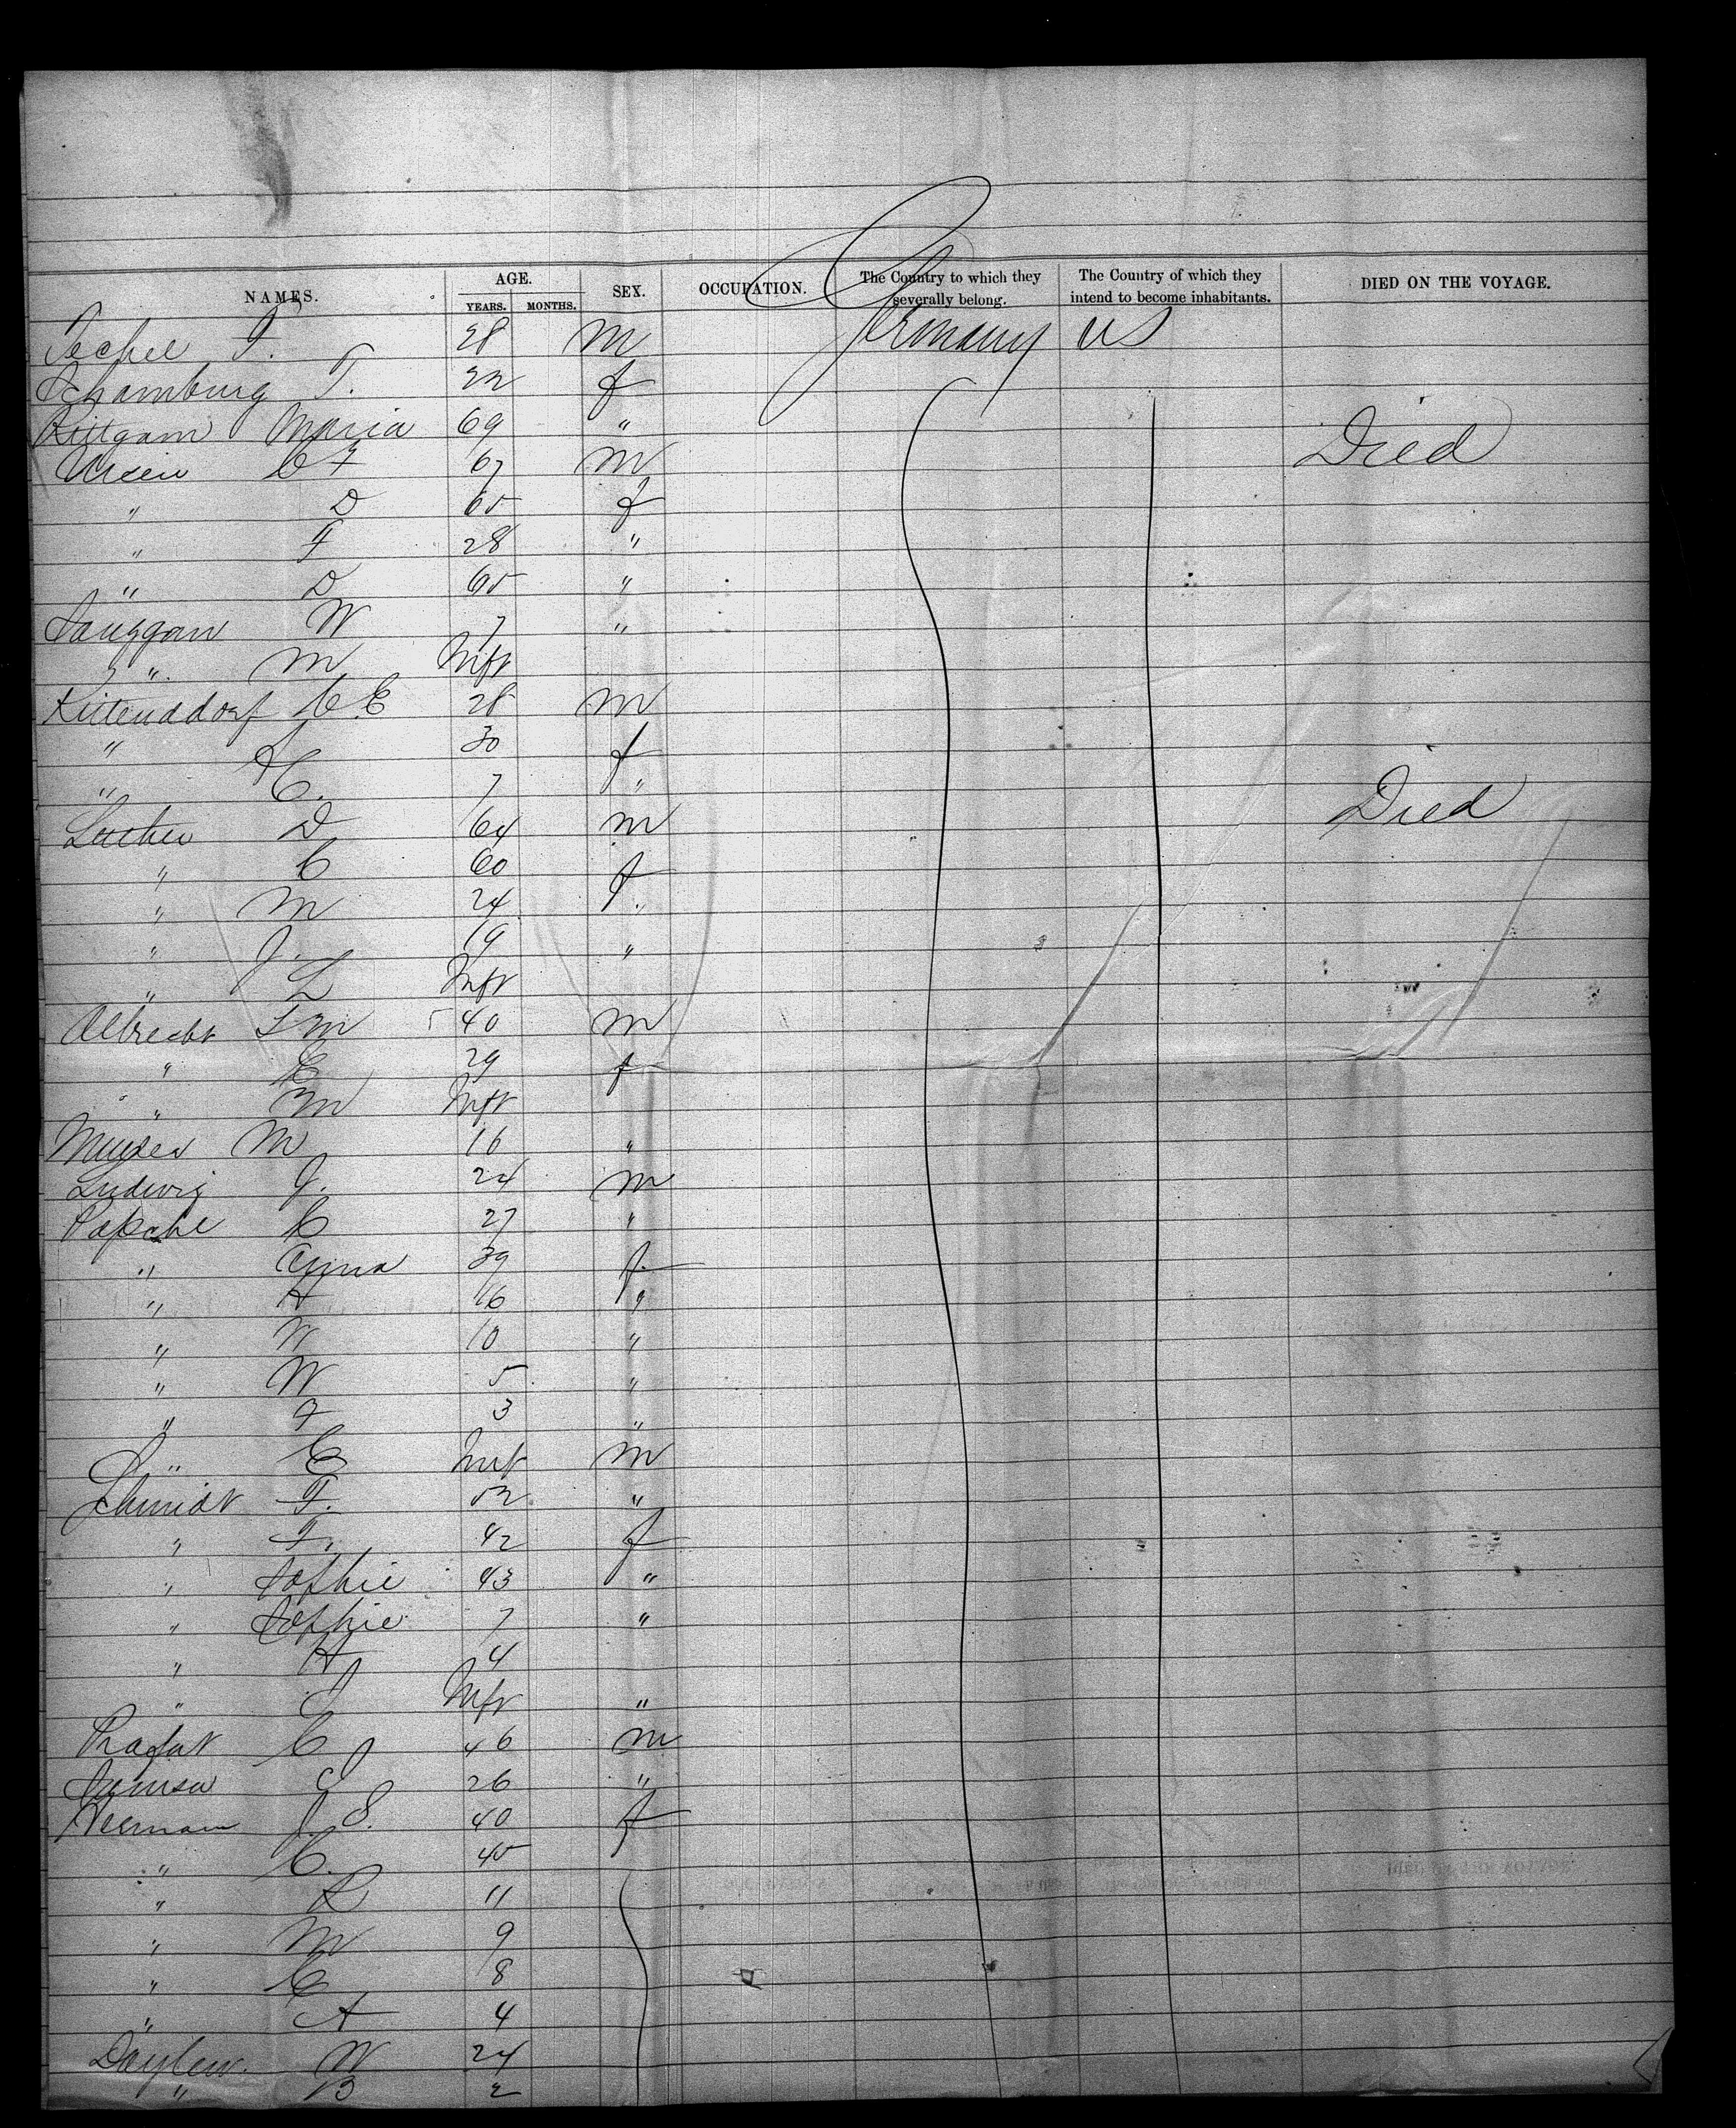 NAMES. AGE. SEX. OCCUPATION. The Country to which they severally belong. The Country of which they intend to become inhabitants. DIED ON THE VOYAGE.
YEARS. MONTHS.
28 m Germany US
Schamburg T. 22 f
Maria 69 " Died
C F 67 m
" D 65 f
" F 28 "
" D 65 "
W 7 "
" M Inft
Kittenddorf C. E 28 m
" 30 f
" C. 7 "
D 64 m Died
" C 60 f
" M 24 "
" J. 19 "
" L Inft
Albrecht F M 40 m
" C 29 f
" M Inft
M 16 "
Ludwig J. 24 m
C 27 "
" Anna 39 f
" H 16 "
" W 10 "
" W 5 "
" F 3 "
" C Inft m
Schmidt F. 52 "
" F. 42 f
" Sophie 43 "
" Sophie 7 "
" H 4
" J Inft "
C 46 m
J 26 "
Herman J. S. 40 f
" C. 45
" R 11
" M 9
" C 8
" A 4
W 24
" B 2